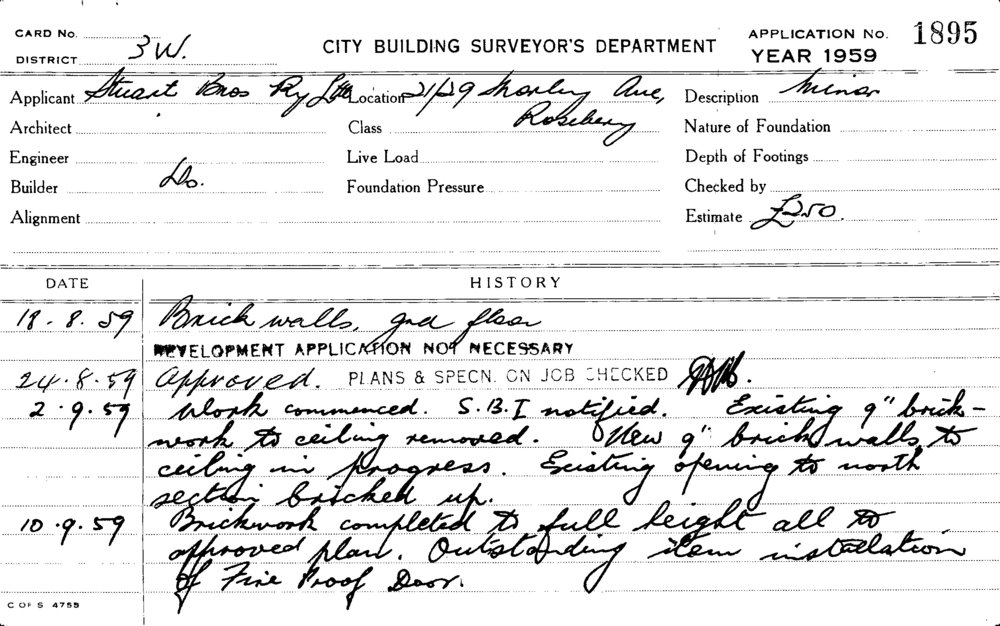 CARD No.
DISTRICT 3 W.
CITY BUILDING SURVEYOR'S DEPARTMENT
APPLICATION No. 1895
YEAR 1959
Applicant Stuart Bros Pty Ltd Location 21/29 Morley Ave, Description Minor
Architect Class Rosebery Nature of Foundation
Engineer Live Load Depth of Footings
Builder Do. Foundation Pressure Checked by
Alignment Estimate £250.
DATE HISTORY
18.8.59 Brick walls, gnd floor
DEVELOPMENT APPLICATION NOT NECESSARY
24.8.59 Approved. PLANS & SPECN. ON JOB CHECKED
2.9.59 Work commenced. S.B.I notified. Existing 9" brick-
work to ceiling removed. New 9" brick walls to
ceiling in progress. Existing opening to north
section bricked up.
10.9.59 Brickwork completed to full height all to
approved plan. Outstanding item installation
of Fire Proof Door.
C OF S 4755